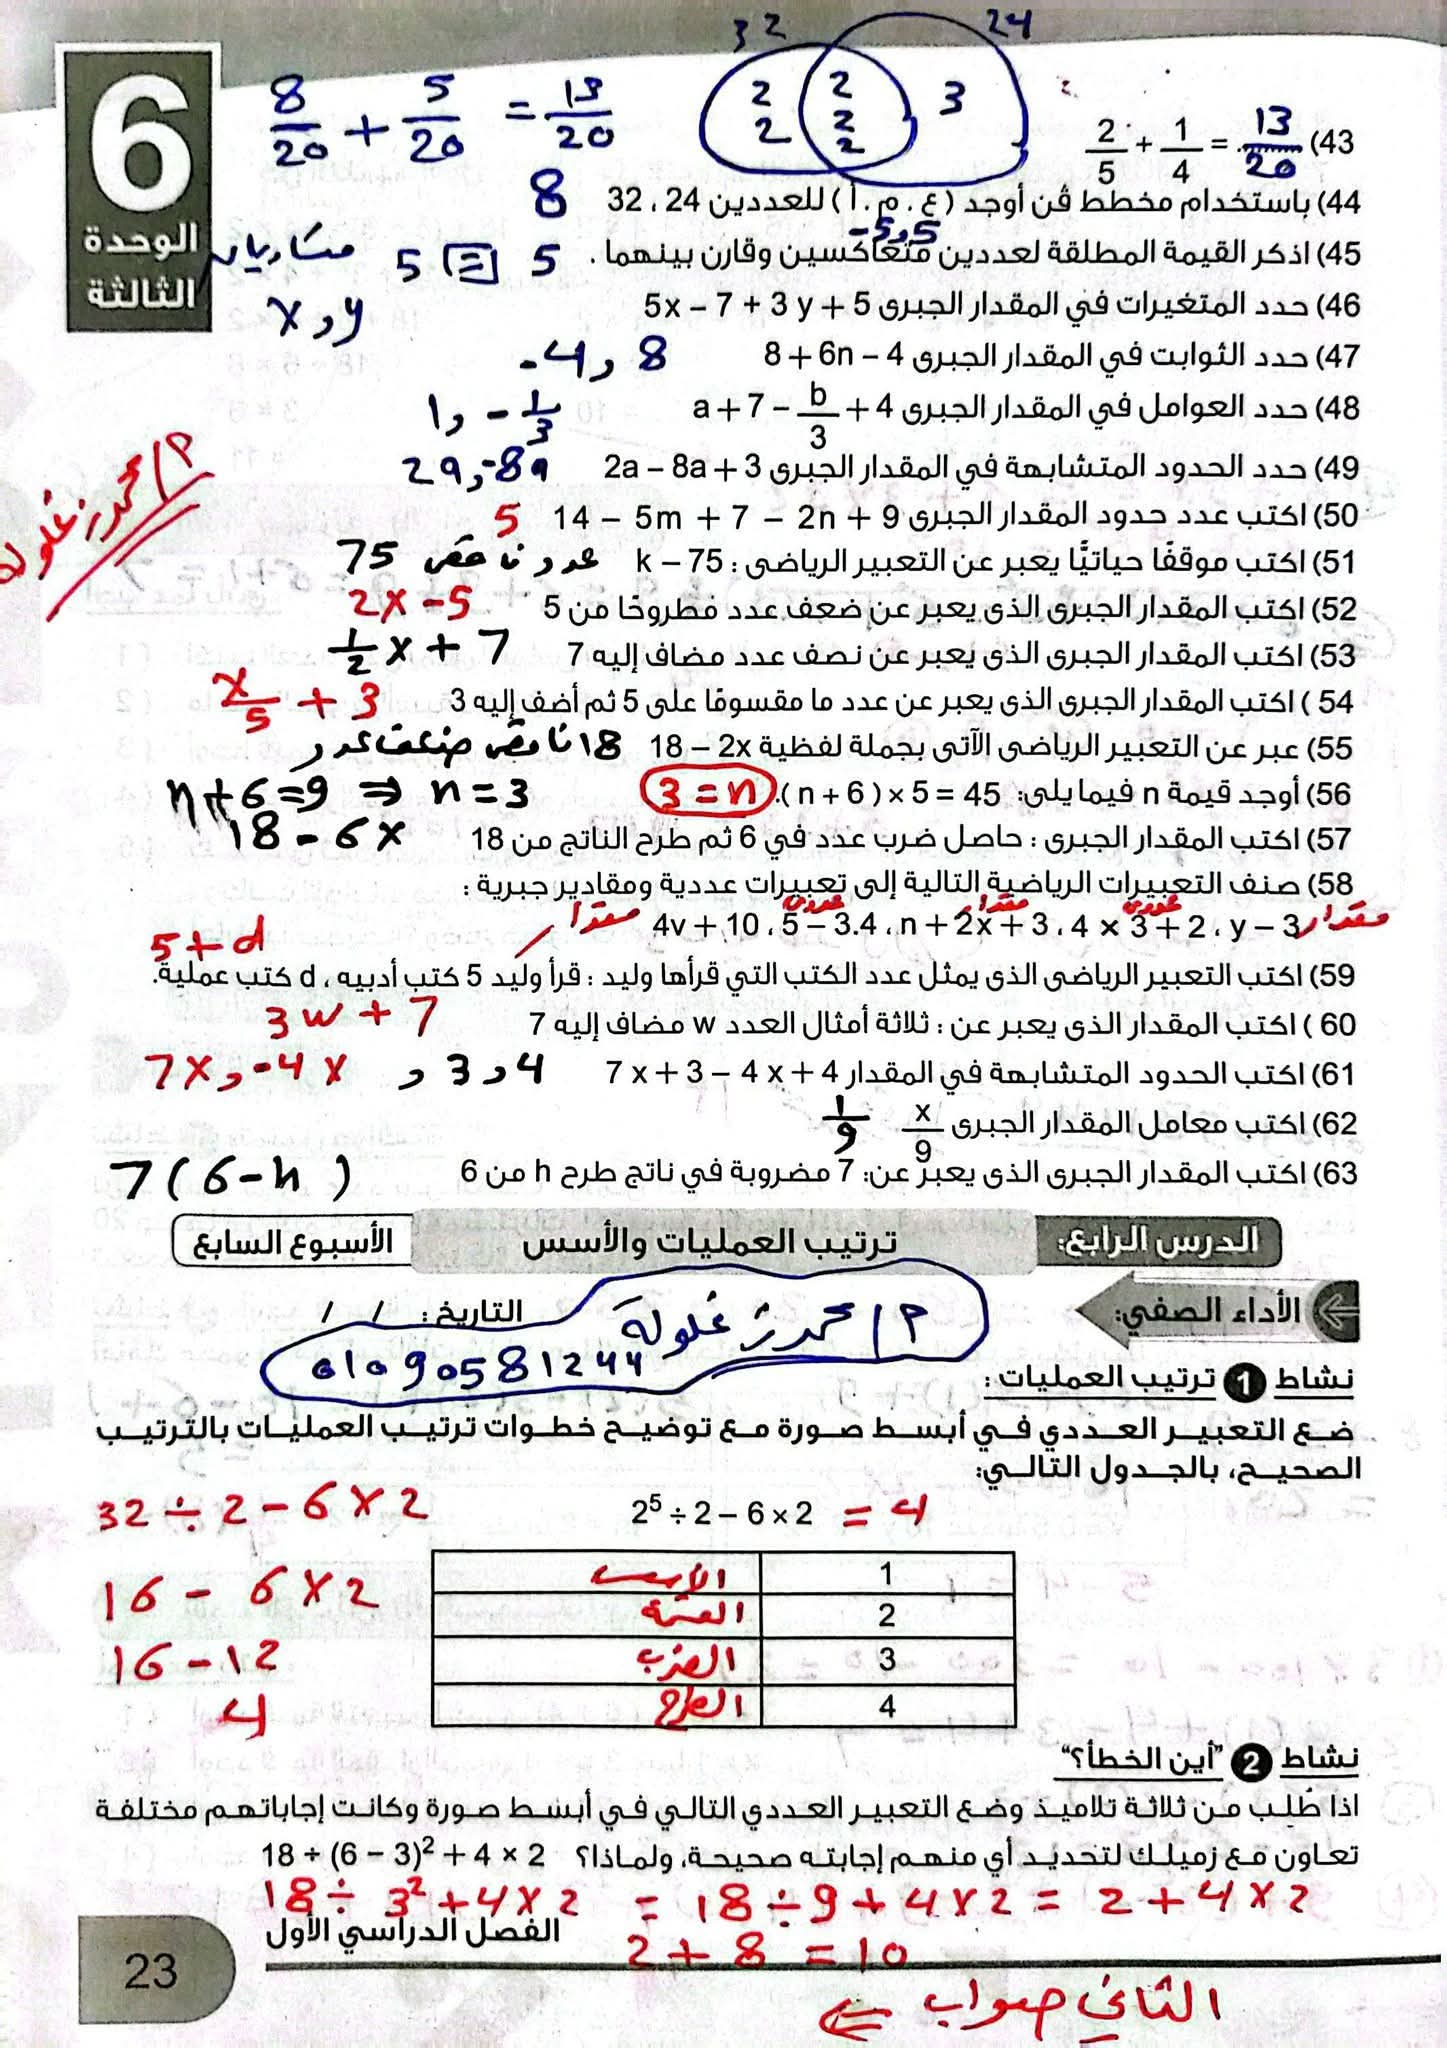 6
الوحدة
الثالثة
8/20 + 5/20 = 13/20
32 24
2 2 3
2 2
2
43) 2/5 + 1/4 = 13/20
44) باستخدام مخطط ڤن أوجد (ع . م . أ) للعددين 24 ، 32 8
5 و 5-
45) اذكر القيمة المطلقة لعددين متعاكسين وقارن بينهما . 5 = 5 متساويان
46) حدد المتغيرات في المقدار الجبرى 5x – 7 + 3 y + 5 x و y
47) حدد الثوابت في المقدار الجبرى 8 + 6n – 4 8 و -4
48) حدد العوامل في المقدار الجبرى a + 7 – b/3 + 4 1 و -1/3
49) حدد الحدود المتشابهة في المقدار الجبرى 2a – 8a + 3 2a و -8a
50) اكتب عدد حدود المقدار الجبرى 14 – 5m + 7 – 2n + 9 5
51) اكتب موقفًا حياتيًّا يعبر عن التعبير الرياضى : k – 75 عدد ناقص 75
52) اكتب المقدار الجبرى الذى يعبر عن ضعف عدد مطروحًا من 5 2x - 5
53) اكتب المقدار الجبرى الذى يعبر عن نصف عدد مضاف إليه 7 1/2 x + 7
54 ) اكتب المقدار الجبرى الذى يعبر عن عدد ما مقسومًا على 5 ثم أضف إليه 3 x/5 + 3
55) عبر عن التعبير الرياضى الآتى بجملة لفظية 18 – 2x 18 ناقص ضعف عدد
56) أوجد قيمة n فيما يلى: ( n + 6 ) × 5 = 45. 3 = n n + 6 = 9 ⇒ n = 3
57) اكتب المقدار الجبرى : حاصل ضرب عدد في 6 ثم طرح الناتج من 18 18 - 6x
58) صنف التعبيرات الرياضية التالية إلى تعبيرات عددية ومقادير جبرية :
مقدار عددى مقدار عددى مقدار
4v + 10 ، 5 – 3.4 ، n + 2x + 3 ، 4 × 3 + 2 ، y – 3
59) اكتب التعبير الرياضى الذى يمثل عدد الكتب التي قرأها وليد : قرأ وليد 5 كتب أدبيه ، d كتب عملية. 5 + d
60 ) اكتب المقدار الذى يعبر عن : ثلاثة أمثال العدد w مضاف إليه 7 3w + 7
61) اكتب الحدود المتشابهة في المقدار 7 x + 3 – 4 x + 4 3 و 4 , 7x و -4x
62) اكتب معامل المقدار الجبرى x/9 1/9
63) اكتب المقدار الجبرى الذى يعبر عن: 7 مضروبة في ناتج طرح h من 6 7 (6 - h )
م/ محمد زغلولة
الدرس الرابع: ترتيب العمليات والأسس الأسبوع السابع
الأداء الصفي: التاريخ : / /
م/ محمد زغلولة
01090581244
نشاط 1 ترتيب العمليات :
ضع التعبير العددي في أبسط صورة مع توضيح خطوات ترتيب العمليات بالترتيب
الصحيح، بالجدول التالي:
2⁵ ÷ 2 – 6 × 2 = 4
32 ÷ 2 - 6 × 2
16 - 6 × 2
16 - 12
4
1 الأسس
2 القسمة
3 الضرب
4 الطرح
نشاط 2 "أين الخطأ؟"
اذا طُلِب من ثلاثة تلاميذ وضع التعبير العددي التالي في أبسط صورة وكانت إجاباتهم مختلفة
تعاون مع زميلك لتحديد أي منهم إجابته صحيحة، ولماذا؟ 18 ÷ (6 – 3)² + 4 × 2
18 ÷ 3² + 4 × 2 = 18 ÷ 9 + 4 × 2 = 2 + 4 × 2
2 + 8 = 10
الفصل الدراسي الأول
23
الثاني صواب ⇐